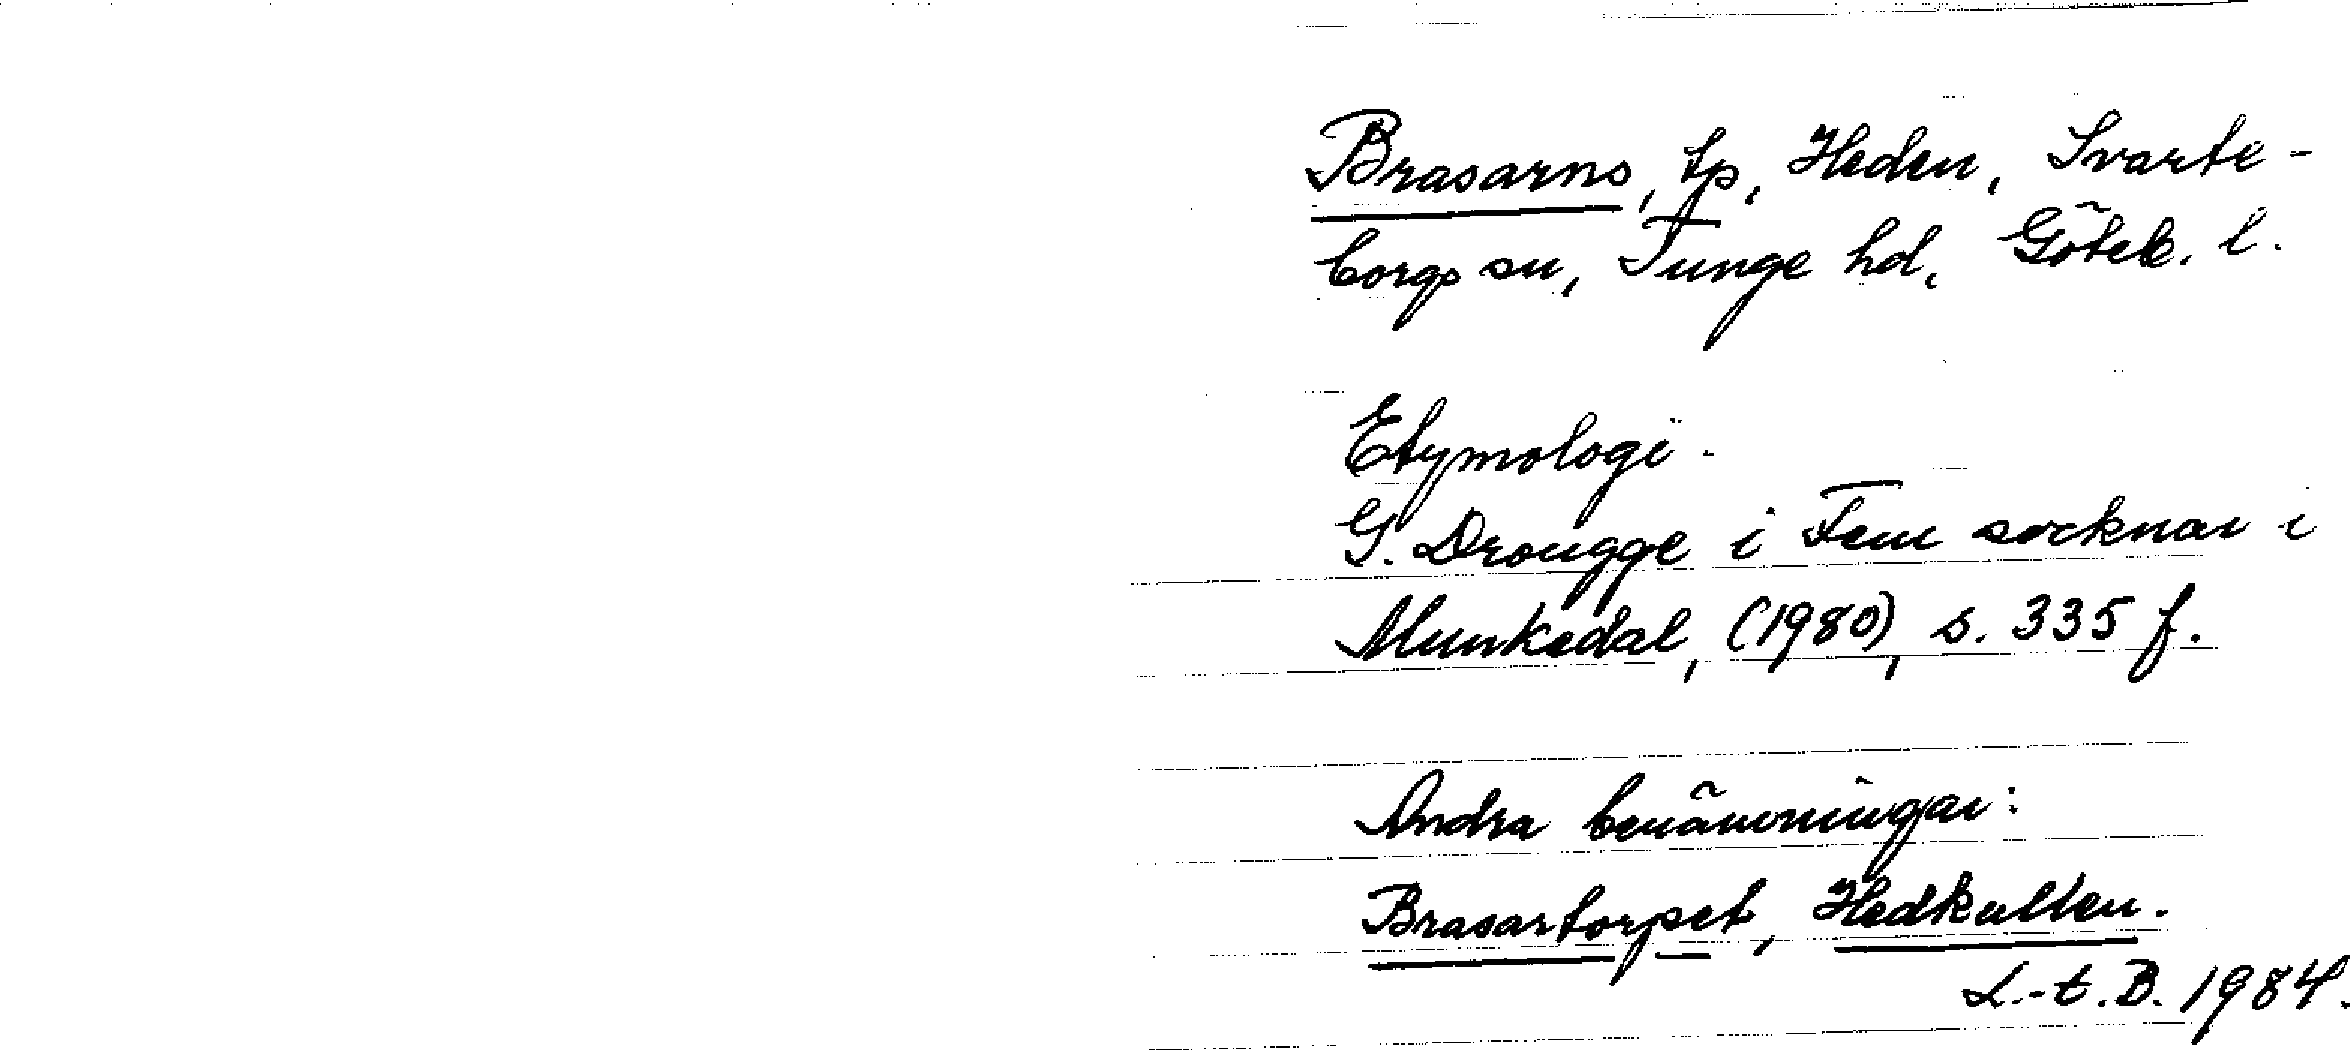 Brasarns, tp, Heden, Svarte-
borgs sn, Tunge hd, Göteb. l.
Etymologi.
G. Drougge i Fem socknar i
Munkedal, (1980), s. 335 f.
Andra benämningar:
Brasartorpet, Hedkullen.
L.-t. B. 1984.